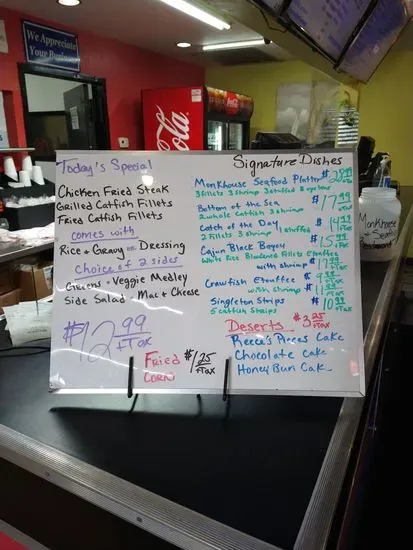 We Appreciate
Your Business
Coca-Cola
Today's Special
Chicken Fried Steak
Grilled Catfish Fillets
Fried Catfish Fillets
comes with
Rice & Gravy or Dressing
Choice of 2 sides
Greens - Veggie Medley
Side Salad - Mac & Cheese
$12.99
+Tax
Fried Corn $1.25
+Tax
Signature Dishes
Monkhouse Seafood Platter
3 fillets 3 shrimp 3 stuffed
+Tax
Bottom of the Sea $17.99
2 whole catfish 3 shrimp
+Tax
Catch of the Day $14.99
2 fillets 3 shrimp 1 stuffed
+Tax
Cajun Black Bayou $15.99
White Rice Blackened Fillets Etouffee
with shrimp $17.99
+Tax
Crawfish Etouffee
with shrimp
+Tax
Singleton Strips $10.99
5 catfish strips
+Tax
Deserts $3.25
+Tax
Reece's Pieces Cake
Chocolate Cake
Honey Bun Cake
Monkhouse